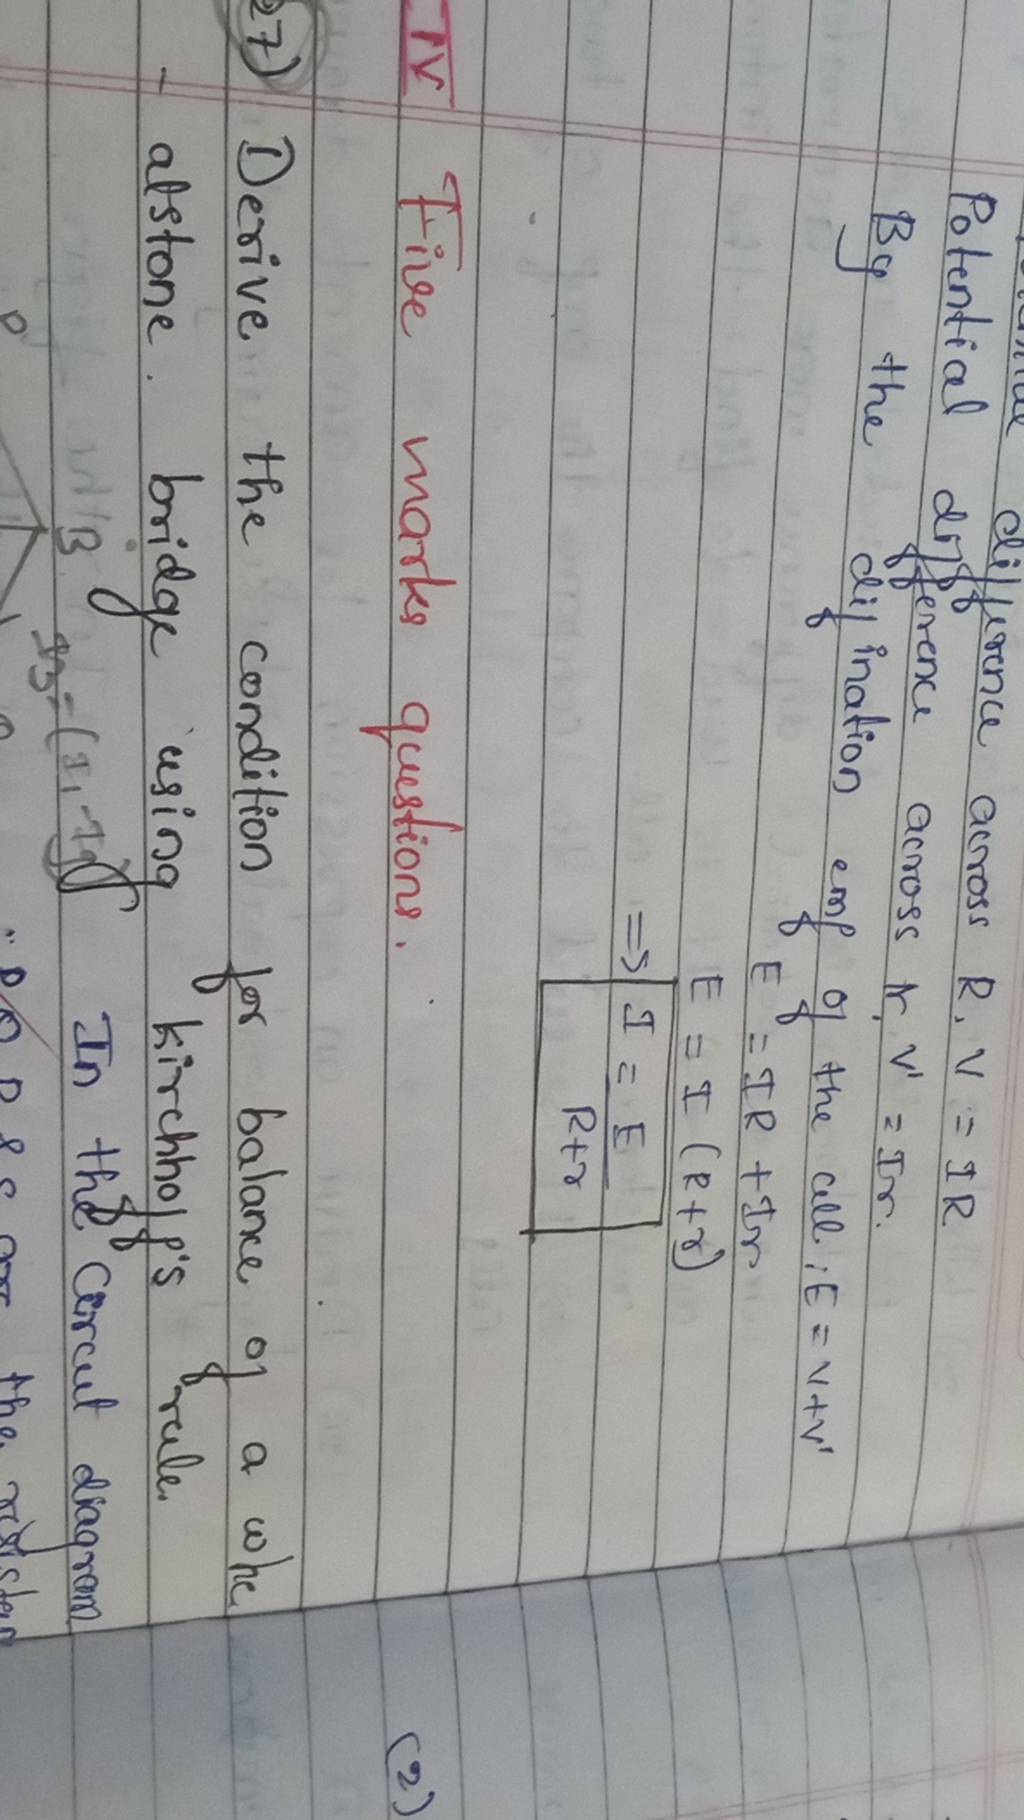 difference across R, V = IR
Potential difference across r, V' = Ir.
By the difination emf of the cell, E = V+V'
E = IR + Ir
E = I (R+r)
=> I = E
R+r
IV Five marks questions.
27) Derive the condition for balance of a whe
- alstone bridge using kirchhoff's rule.
B In the Circuit diagram
P
the
(2)